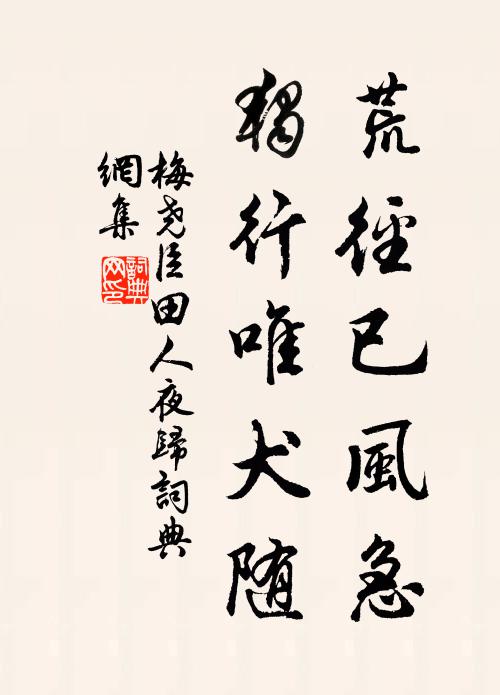 荒徑已風急
獨行唯犬随
梅尧臣田人夜歸詞典
網集
詞典
网印